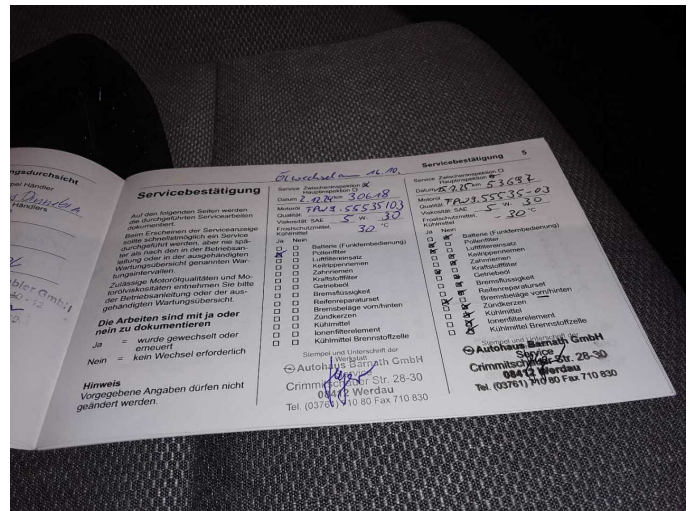 ngsdurchsicht
Händler
Händlers
Ölwechsel am 16.10.
Servicebestätigung
Auf den folgenden Seiten werden
die durchgeführten Servicearbeiten
dokumentiert.
Beim Erscheinen der Serviceanzeige
sollte schnellstmöglich ein Service
durchgeführt werden, aber nie spä-
ter als nach den in der Betriebsan-
leitung oder in der ausgehändigten
Wartungsübersicht genannten War-
tungsintervallen.
Zulässige Motorölqualitäten und Mo-
torölviskositäten entnehmen Sie bitte
der Betriebsanleitung oder der aus-
gehändigten Wartungsübersicht.
Die Arbeiten sind mit ja oder
nein zu dokumentieren
Ja = wurde gewechselt oder
erneuert
Nein = kein Wechsel erforderlich
Hinweis
Vorgegebene Angaben dürfen nicht
geändert werden.
Service Zwischeninspektion
Hauptinspektion
Datum 2.12.24 km 30618
Motoröl
Qualität
Viskosität SAE 5 W. 30
Frostschutzmittel,
Kühlmittel 30 °C
Ja Nein
Batterie (Funkfernbedienung)
Pollenfilter
Luftfiltereinsatz
Keilrippenriemen
Zahnriemen
Kraftstofffilter
Getriebeöl
Bremsflüssigkeit
Reifenreparaturset
Bremsbeläge vorn/hinten
Zündkerzen
Kühlmittel
Ionenfilterelement
Kühlmittel Brennstoffzelle
Stempel und Unterschrift der
Werkstatt
Autohaus Barnath GmbH
Service
Crimmitschauer Str. 28-30
08412 Werdau
Tel. (03761) 710 80 Fax 710 830
Servicebestätigung 5
Service Zwischeninspektion
Hauptinspektion
Datum km 53697
Motoröl
Qualität
Viskosität SAE 5 W. 30
Frostschutzmittel,
Kühlmittel - 30 °C
Ja Nein
Batterie (Funkfernbedienung)
Pollenfilter
Luftfiltereinsatz
Keilrippenriemen
Zahnriemen
Kraftstofffilter
Getriebeöl
Bremsflüssigkeit
Reifenreparaturset
Bremsbeläge vorn/hinten
Zündkerzen
Kühlmittel
Ionenfilterelement
Kühlmittel Brennstoffzelle
Stempel und Unterschrift der
Autohaus Barnath GmbH
Service
Crimmitschauer Str. 28-30
08412 Werdau
Tel. (03761) 710 80 Fax 710 830